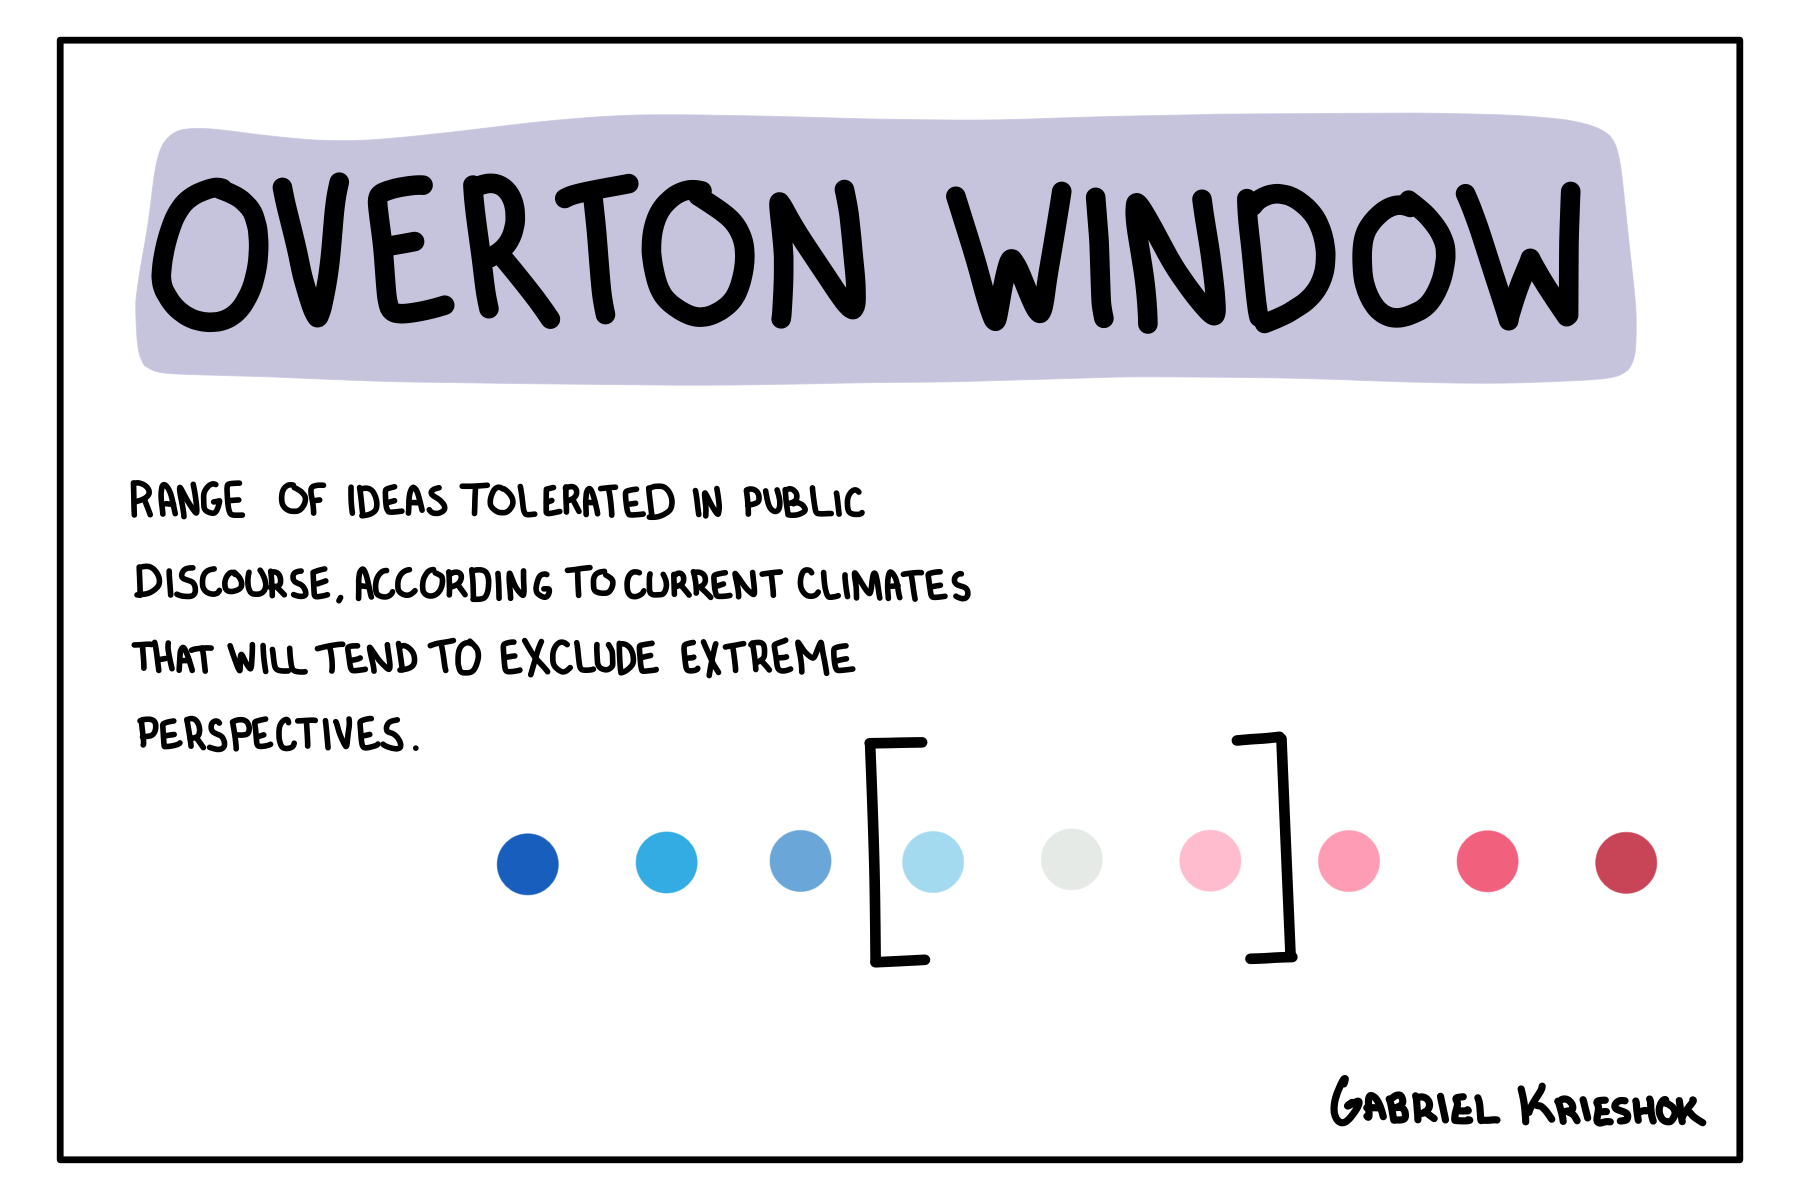 OVERTON WINDOW
RANGE OF IDEAS TOLERATED IN PUBLIC
DISCOURSE, ACCORDING TO CURRENT CLIMATES
THAT WILL TEND TO EXCLUDE EXTREME
PERSPECTIVES.
GABRIEL KRIESHOK